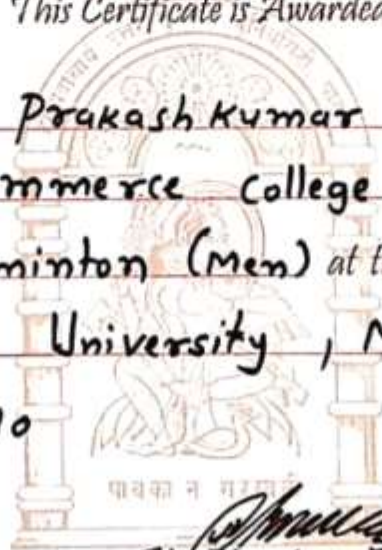 This Certificate is Awarded
Prakash Kumar
mmerce College
minton (Men) at t
University , N
10